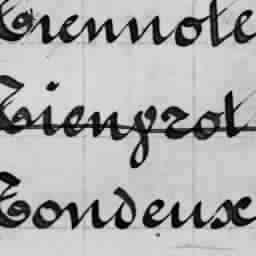 Trennote
Tienprot
Tondeux